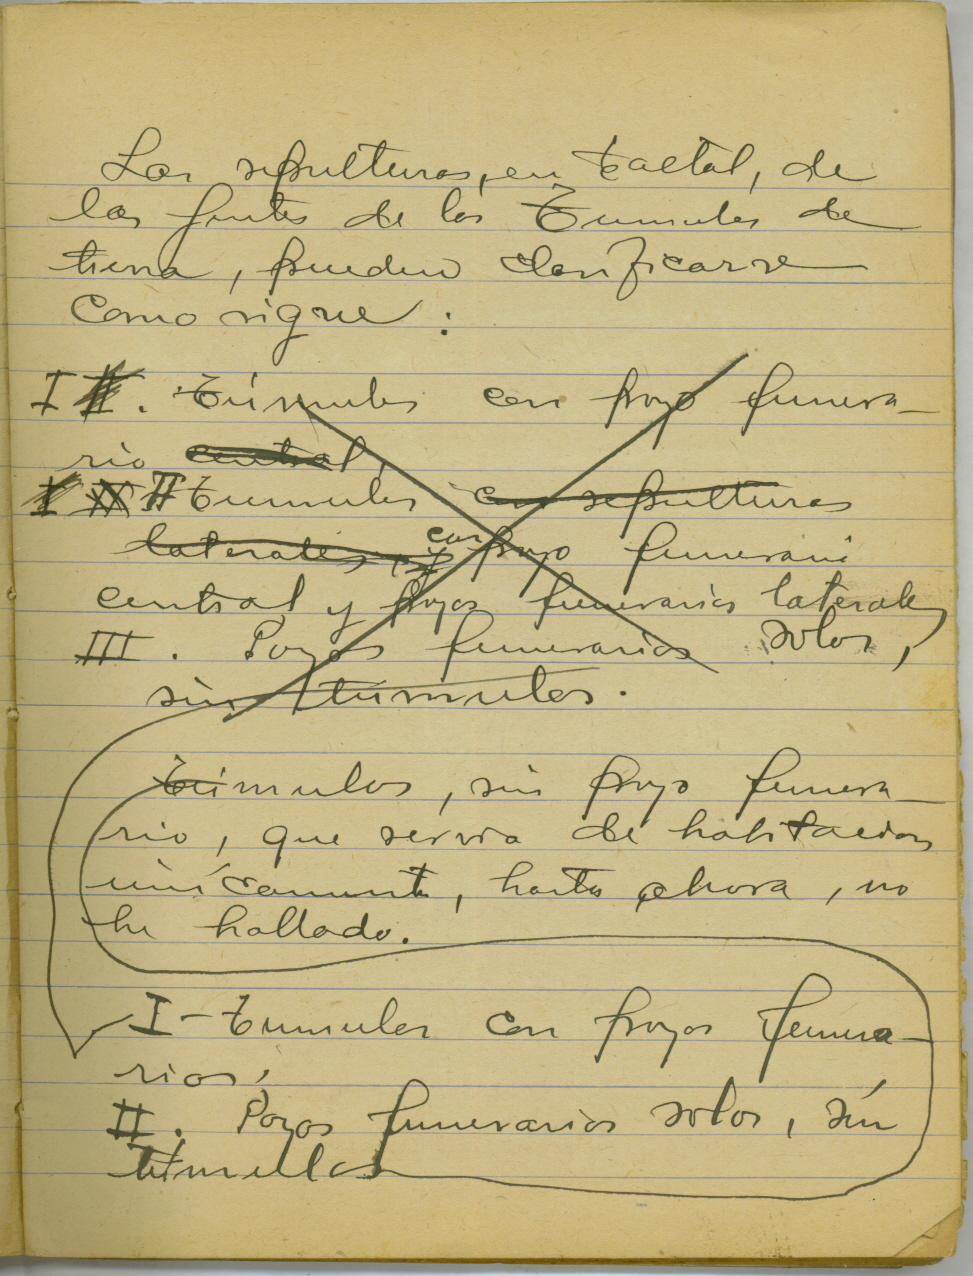 Las sepulturas, en Taltal, de
las gentes de los Túmulos de
tierra, pueden clasificarse
como sigue :
I II. Túmulos con pozo funera-
rio central,
I II II Tumulos con sepulturas
laterales, y con pozo funerario
central y pozos funerarios laterales,
III. Pozos funerarios solos,
sin túmulos.
Túmulos, sin pozo funera-
rio, que servia de habitacion
unicamente, hasta ahora, no
he hallado.
I- Tumulos con pozos funera-
rios,
II. Pozos funerarios solos, sin
túmulos